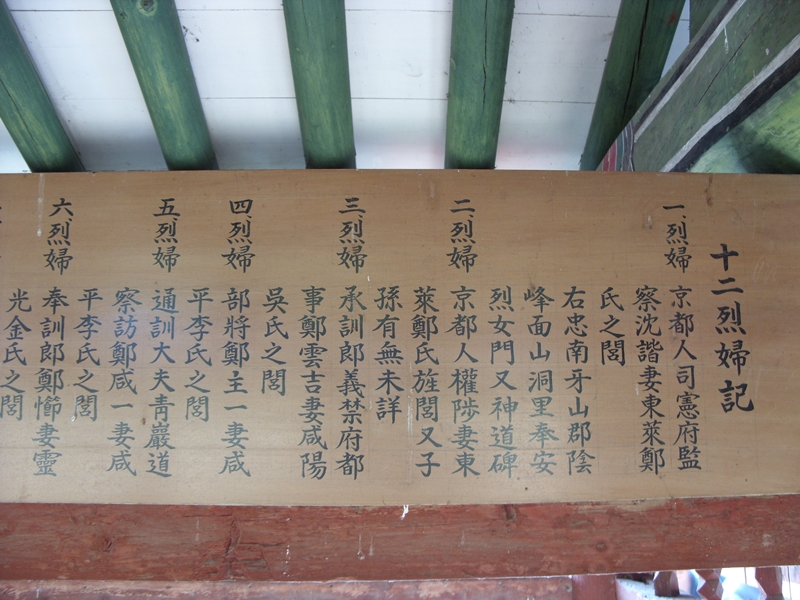 十二烈婦記
一、烈婦 京都人司憲府監
察沈諧妻東萊鄭
氏之閭
右忠南牙山郡陰
峰面山洞里奉安
烈女門又神道碑
二、烈婦 京都人權陟妻東
萊鄭氏旌閭又子
孫有無未詳
三、烈婦 承訓郎義禁府都
事鄭雲吉妻咸陽
吳氏之閭
四、烈婦 部將鄭主一妻咸
平李氏之閭
五、烈婦 通訓大夫靑巖道
察訪鄭咸一妻咸
平李氏之閭
六、烈婦 奉訓郎鄭㦢妻靈
光金氏之閭